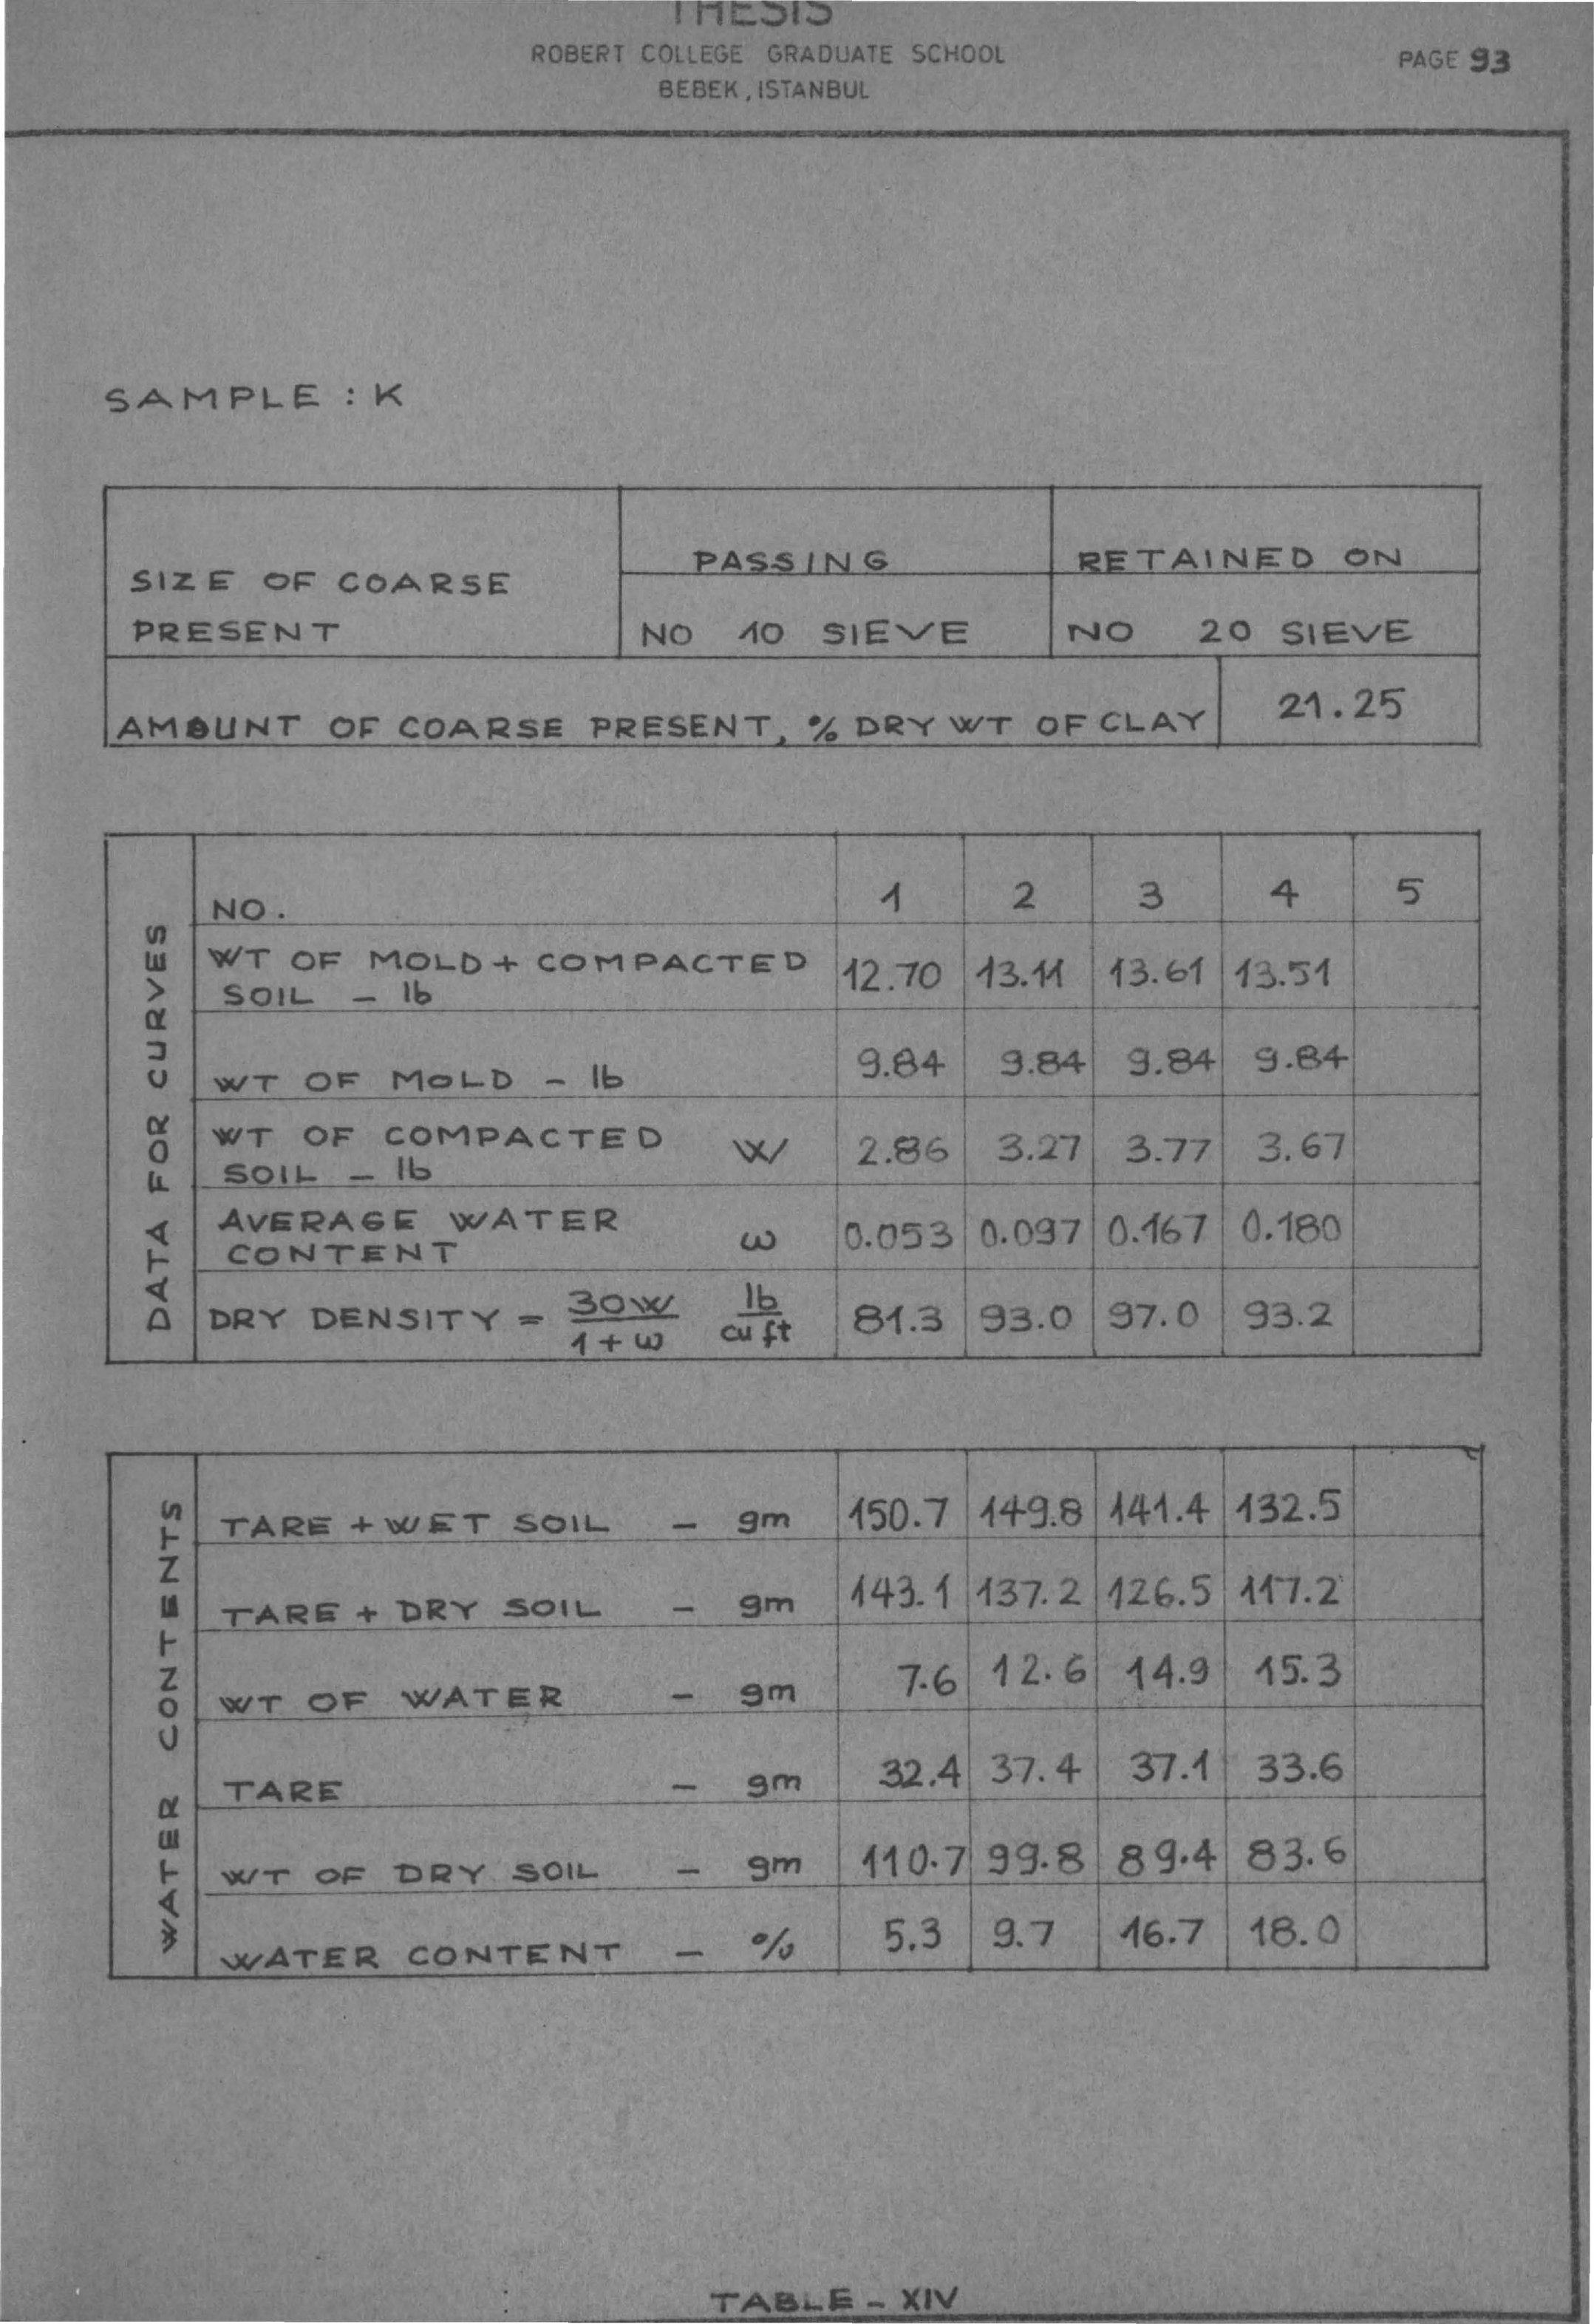 THESIS
ROBERT COLLEGE GRADUATE SCHOOL
PAGE 93
BEBEK, ISTANBUL
SAMPLE : K
SIZE OF COARSE PRESENT
PASSING
RETAINED ON
NO 10 SIEVE
NO 20 SIEVE
AMOUNT OF COARSE PRESENT, % DRY WT OF CLAY 21.25
DATA FOR CURVES
NO. 1 2 3 4 5
WT OF MOLD + COMPACTED
SOIL - lb 12.70 13.11 13.61 13.51
WT OF MOLD - lb 9.84 9.84 9.84 9.84
WT OF COMPACTED
SOIL - lb W 2.86 3.27 3.77 3.67
AVERAGE WATER
CONTENT ω 0.053 0.097 0.167 0.180
DRY DENSITY = 30W / 1 + ω lb / cu ft 81.3 93.0 97.0 93.2
WATER CONTENTS
TARE + WET SOIL - gm 150.7 149.8 141.4 132.5
TARE + DRY SOIL - gm 143.1 137.2 126.5 117.2
WT OF WATER - gm 7.6 12.6 14.9 15.3
TARE - gm 32.4 37.4 37.1 33.6
WT OF DRY SOIL - gm 110.7 99.8 89.4 83.6
WATER CONTENT - % 5.3 9.7 16.7 18.0
TABLE - XIV